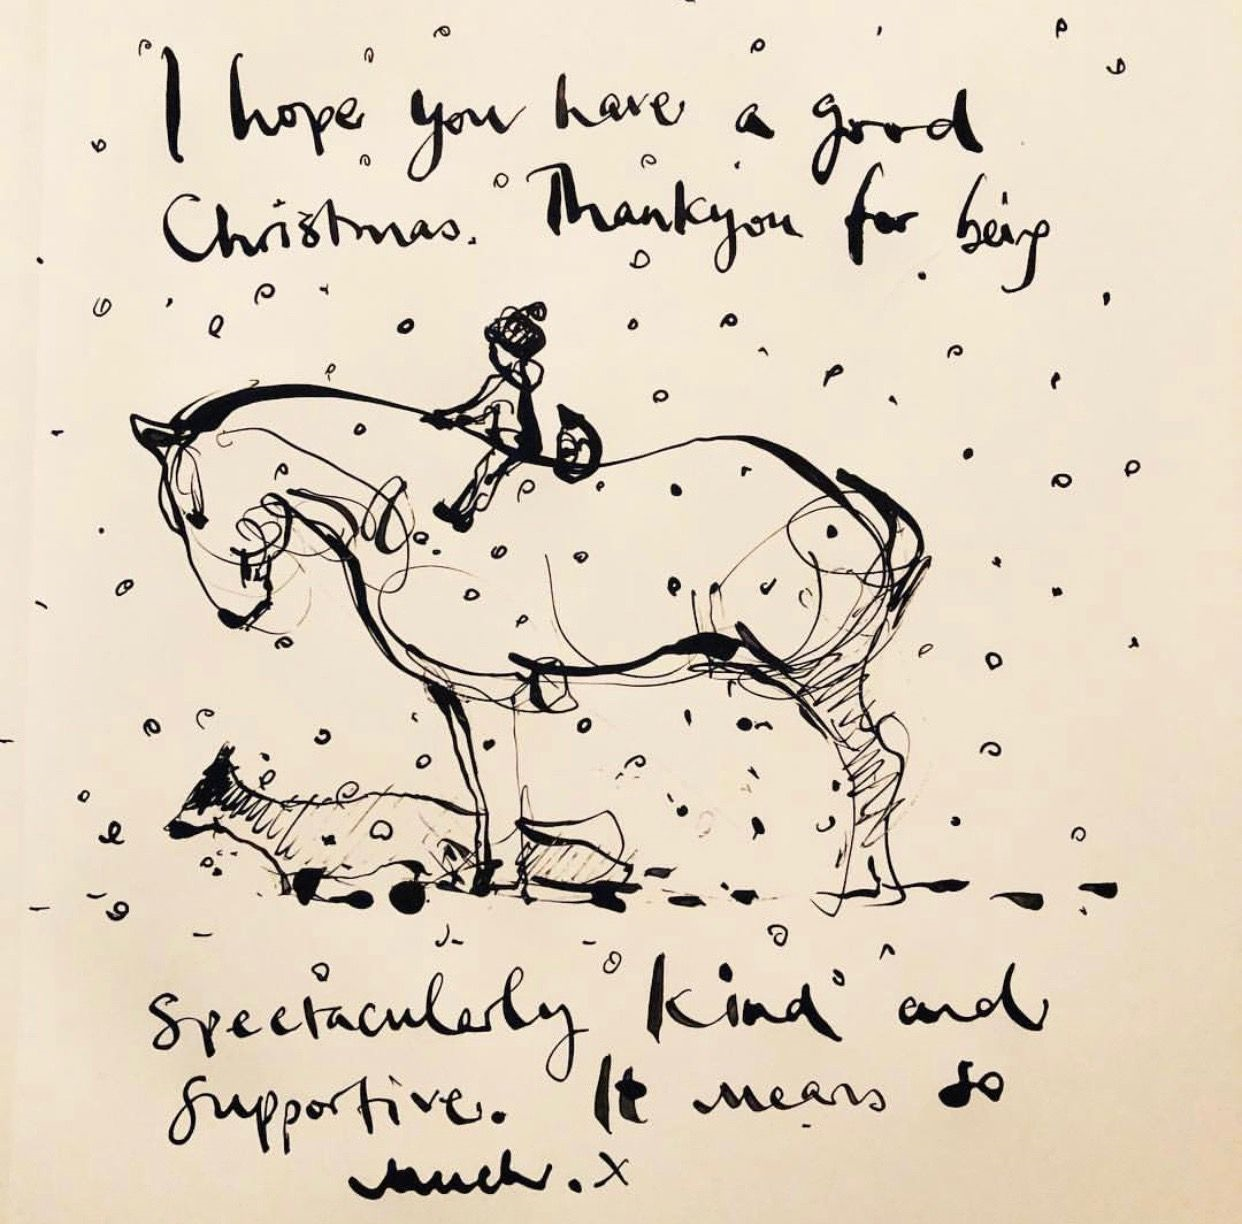 I hope you have a good
Christmas. Thankyou for being
Spectacularly kind and
supportive. It means so
much. x